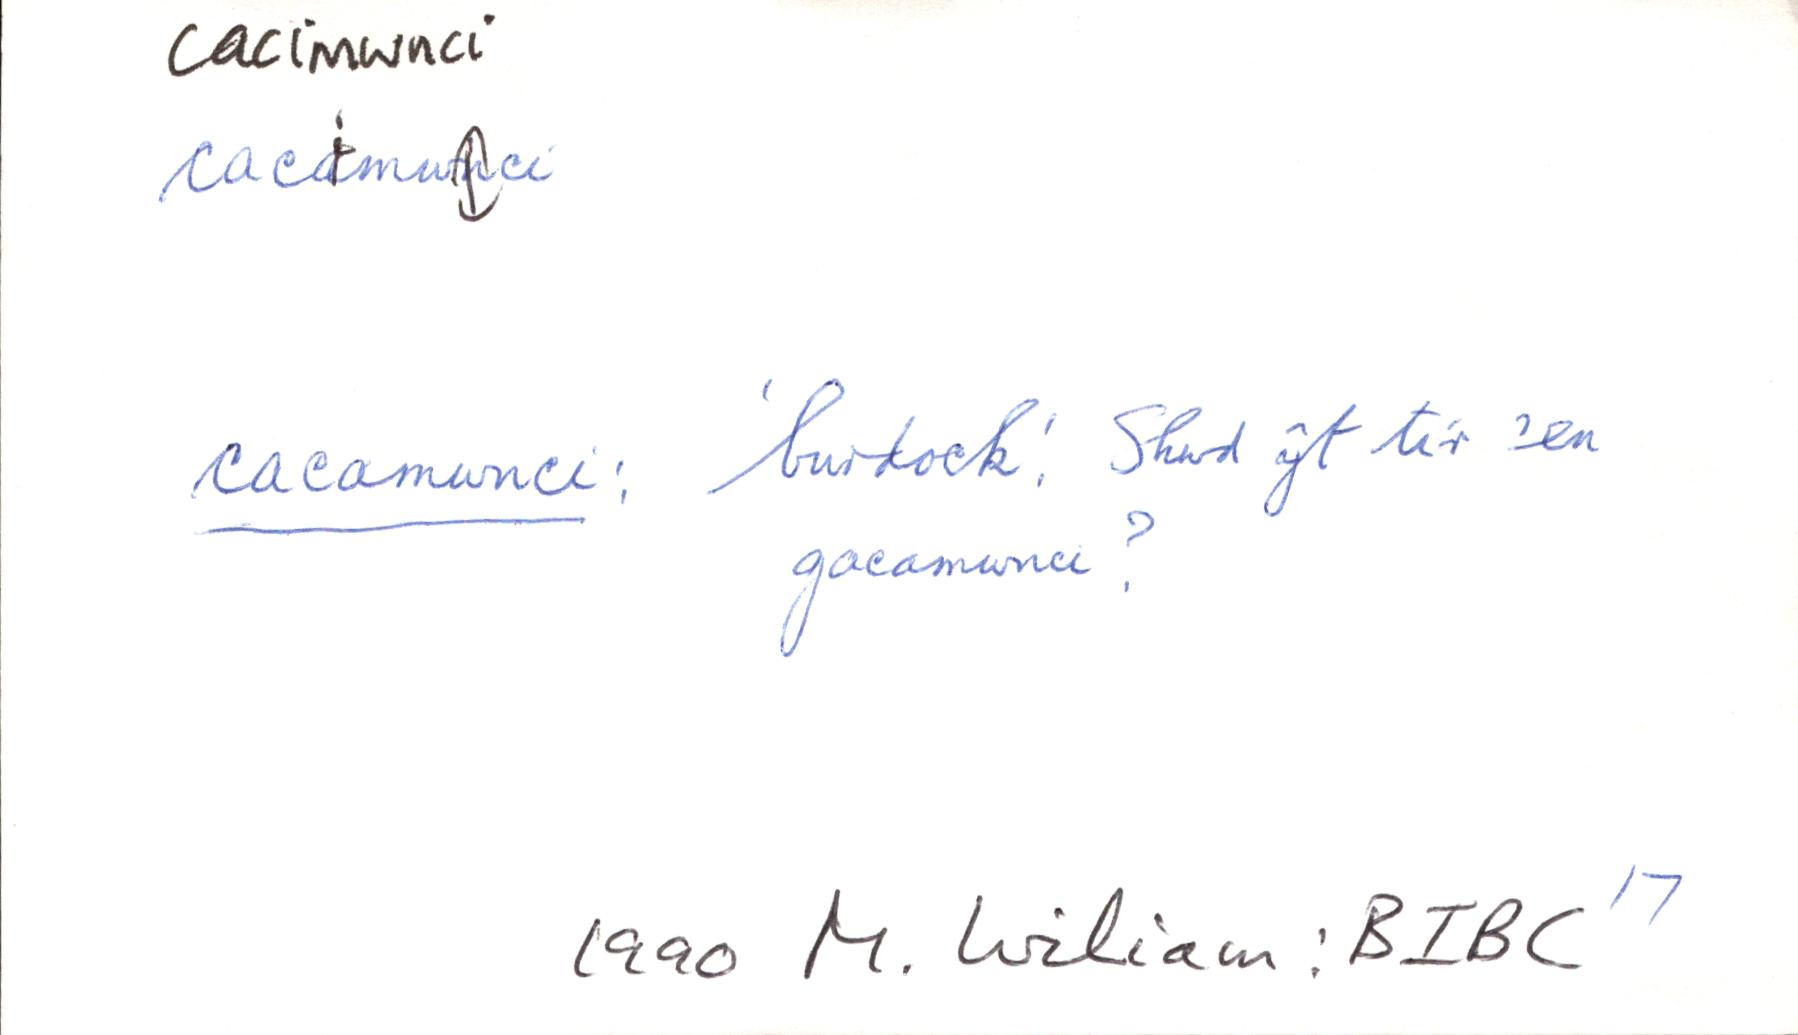 cacimwnci
cacimwnci
cacamwnci: 'burdock'. Shwd ŷt ti'r 'en
gacamwnci?
1990 M. Wiliam: BIBC 17